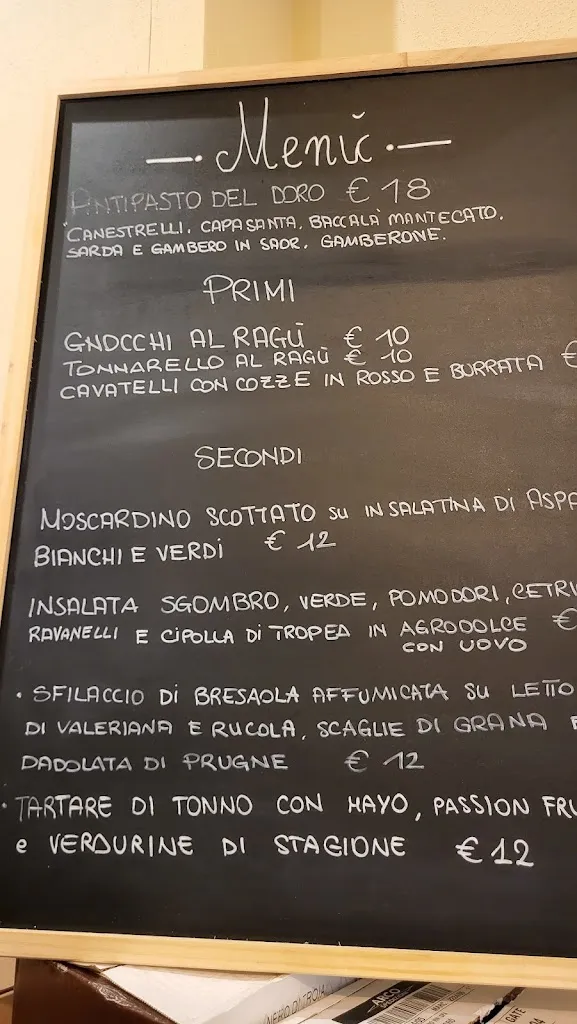 Menù
ANTIPASTO DEL DORO € 18
CANESTRELLI, CAPASANTA, BACCALÀ MANTECATO,
SARDA E GAMBERO IN SAOR, GAMBERONE.
PRIMI
GNOCCHI AL RAGÙ € 10
TONNARELLO AL RAGÙ € 10
CAVATELLI CON COZZE IN ROSSO E BURRATA €
SECONDI
MOSCARDINO SCOTTATO SU INSALATINA DI ASPA
BIANCHI E VERDI € 12
INSALATA SGOMBRO, VERDE, POMODORI, CETRI
RAVANELLI E CIPOLLA DI TROPEA IN AGRODOLCE €
CON UOVO
• SFILACCIO DI BRESAOLA AFFUMICATA SU LETTO
DI VALERIANA E RUCOLA, SCAGLIE DI GRANA E
DADOLATA DI PRUGNE € 12
• TARTARE DI TONNO CON MAYO, PASSION FRU
e VERDURINE DI STAGIONE € 12
NERO DI TROIA
ARCO
GATE